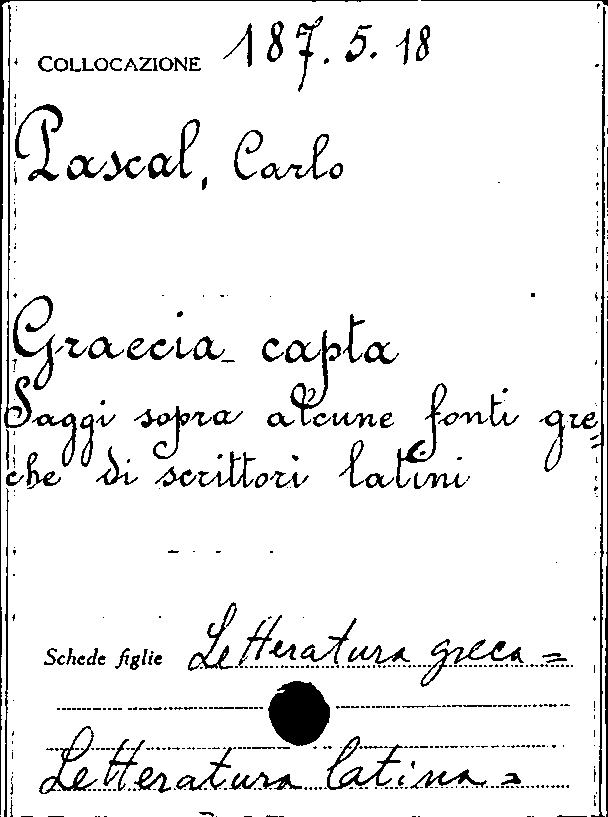 COLLOCAZIONE 187.5.18
Pascal, Carlo
Graecia capta
Saggi sopra alcune fonti gre=
che di scrittori latini
Schede figlie Letteratura greca =
Letteratura latina =